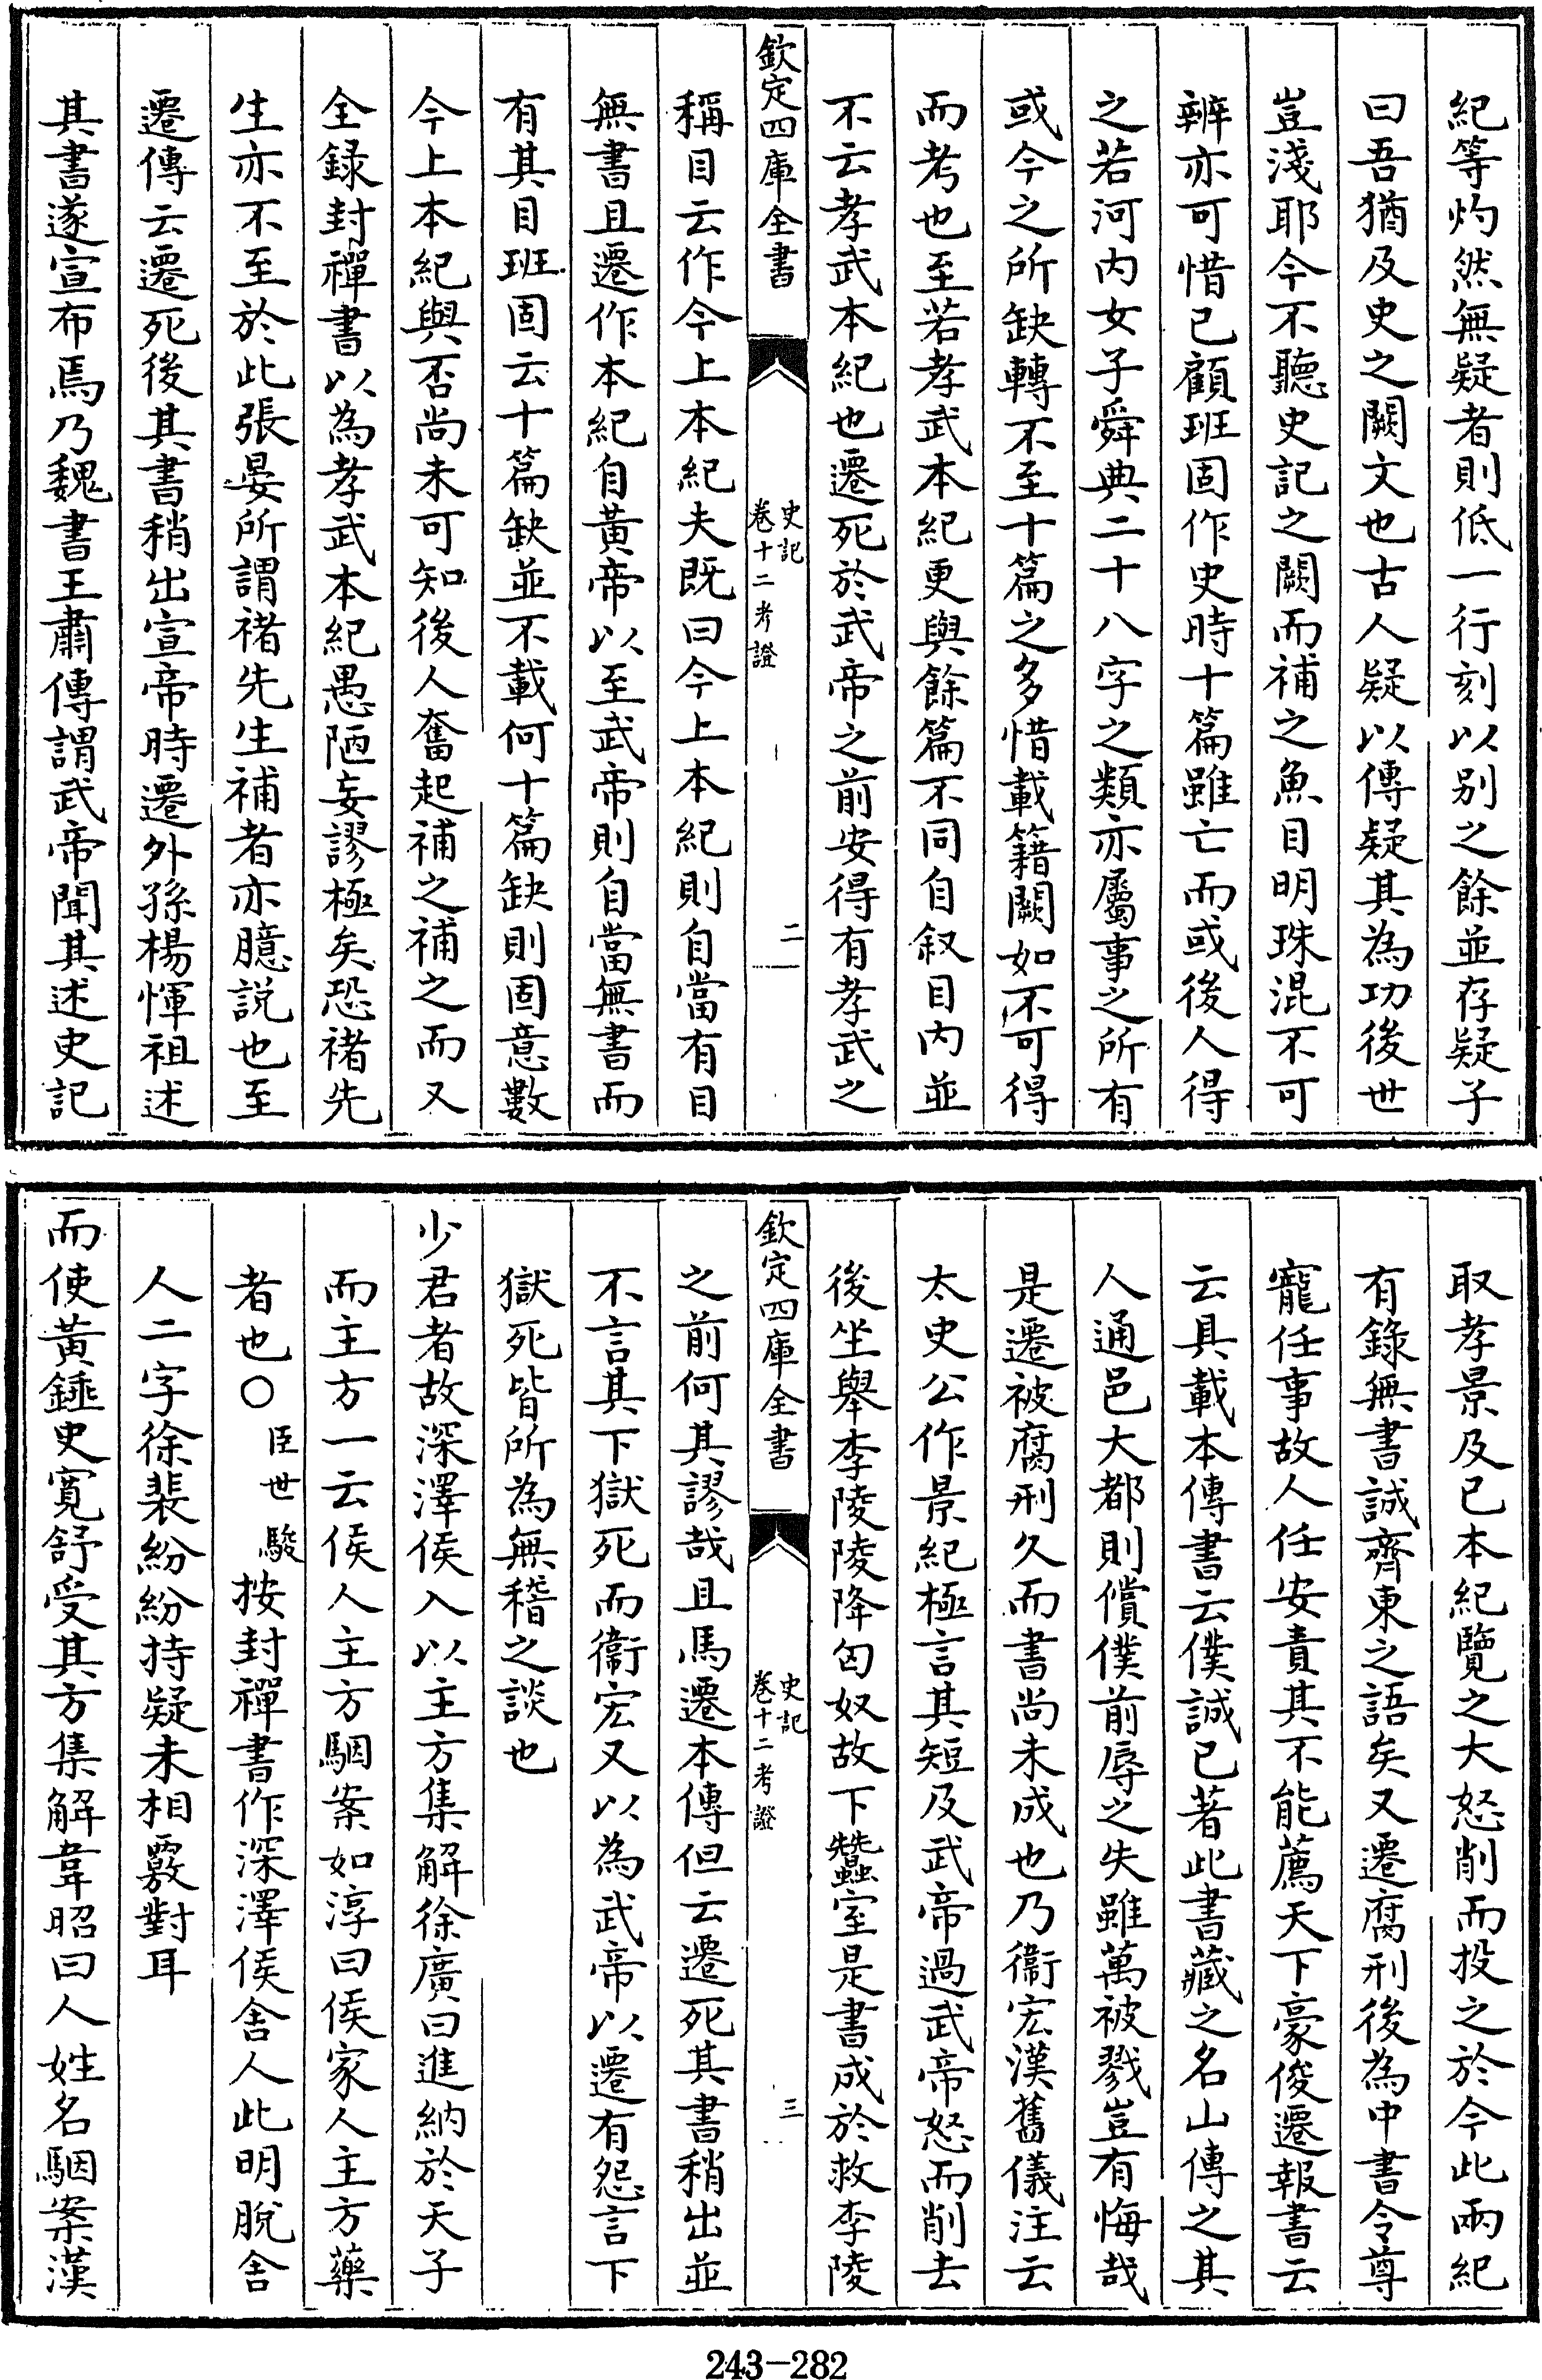 紀等灼然無疑者則低一行刻以别之餘並存疑子
曰吾猶及史之闕文也古人疑以傳疑其為功後世
豈淺耶今不聽史記之闕而補之魚目明珠混不可
辨亦可惜已顧班固作史時十篇雖亡而或後人得
之若河内女子舜典二十八字之類亦屬事之所有
或今之所缺轉不至十篇之多惜載籍闕如不可得
而考也至若孝武本紀更與餘篇不同自叙目内並
不云孝武本紀也遷死於武帝之前安得有孝武之
欽定四庫全書
史記
卷十二考證
二
稱目云作今上本紀夫既曰今上本紀則自當有目
無書且遷作本紀自黄帝以至武帝則自當無書而
有其目班固云十篇缺並不載何十篇缺則固意數
今上本紀與否尚未可知後人奮起補之補之而又
全録封禪書以為孝武本紀愚陋妄謬極矣恐禇先
生亦不至於此張晏所謂禇先生補者亦臆説也至
遷傳云遷死後其書稍出宣帝時遷外孫楊惲祖述
其書遂宣布焉乃魏書王肅傳謂武帝聞其述史記
取孝景及已本紀覽之大怒削而投之於今此兩紀
有錄無書誠齊東之語矣又遷腐刑後為中書令尊
寵任事故人任安責其不能薦天下豪俊遷報書云
云具載本傳書云僕誠已著此書藏之名山傳之其
人通邑大都則償僕前辱之失雖萬被戮豈有悔哉
是遷被腐刑久而書尚未成也乃衞宏漢舊儀注云
太史公作景紀極言其短及武帝過武帝怒而削去
後坐舉李陵陵降匈奴故下蠶室是書成於救李陵
欽定四庫全書
史記
卷十二考證
三
之前何其謬哉且馬遷本傳但云遷死其書稍出並
不言其下獄死而衞宏又以為武帝以遷有怨言下
獄死皆所為無稽之談也
少君者故深澤侯入以主方集解徐廣曰進納於天子
而主方一云侯人主方駰案如淳曰侯家人主方藥
者也〇臣世駿按封禪書作深澤侯舍人此明脫舍
人二字徐裴紛紛持疑未相覈對耳
而使黄錘史寛舒受其方集解韋昭曰人姓名駰案漢
243-282